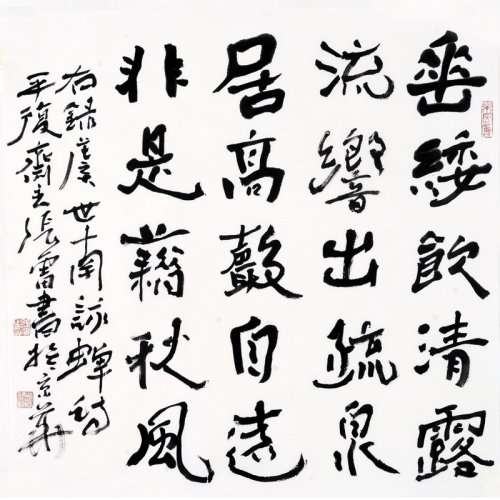 垂緌飲清露
流響出疏泉
居高聲自遠
非是藉秋風
右錄虞世南詠蟬詩
平復齋主張雷書於京華